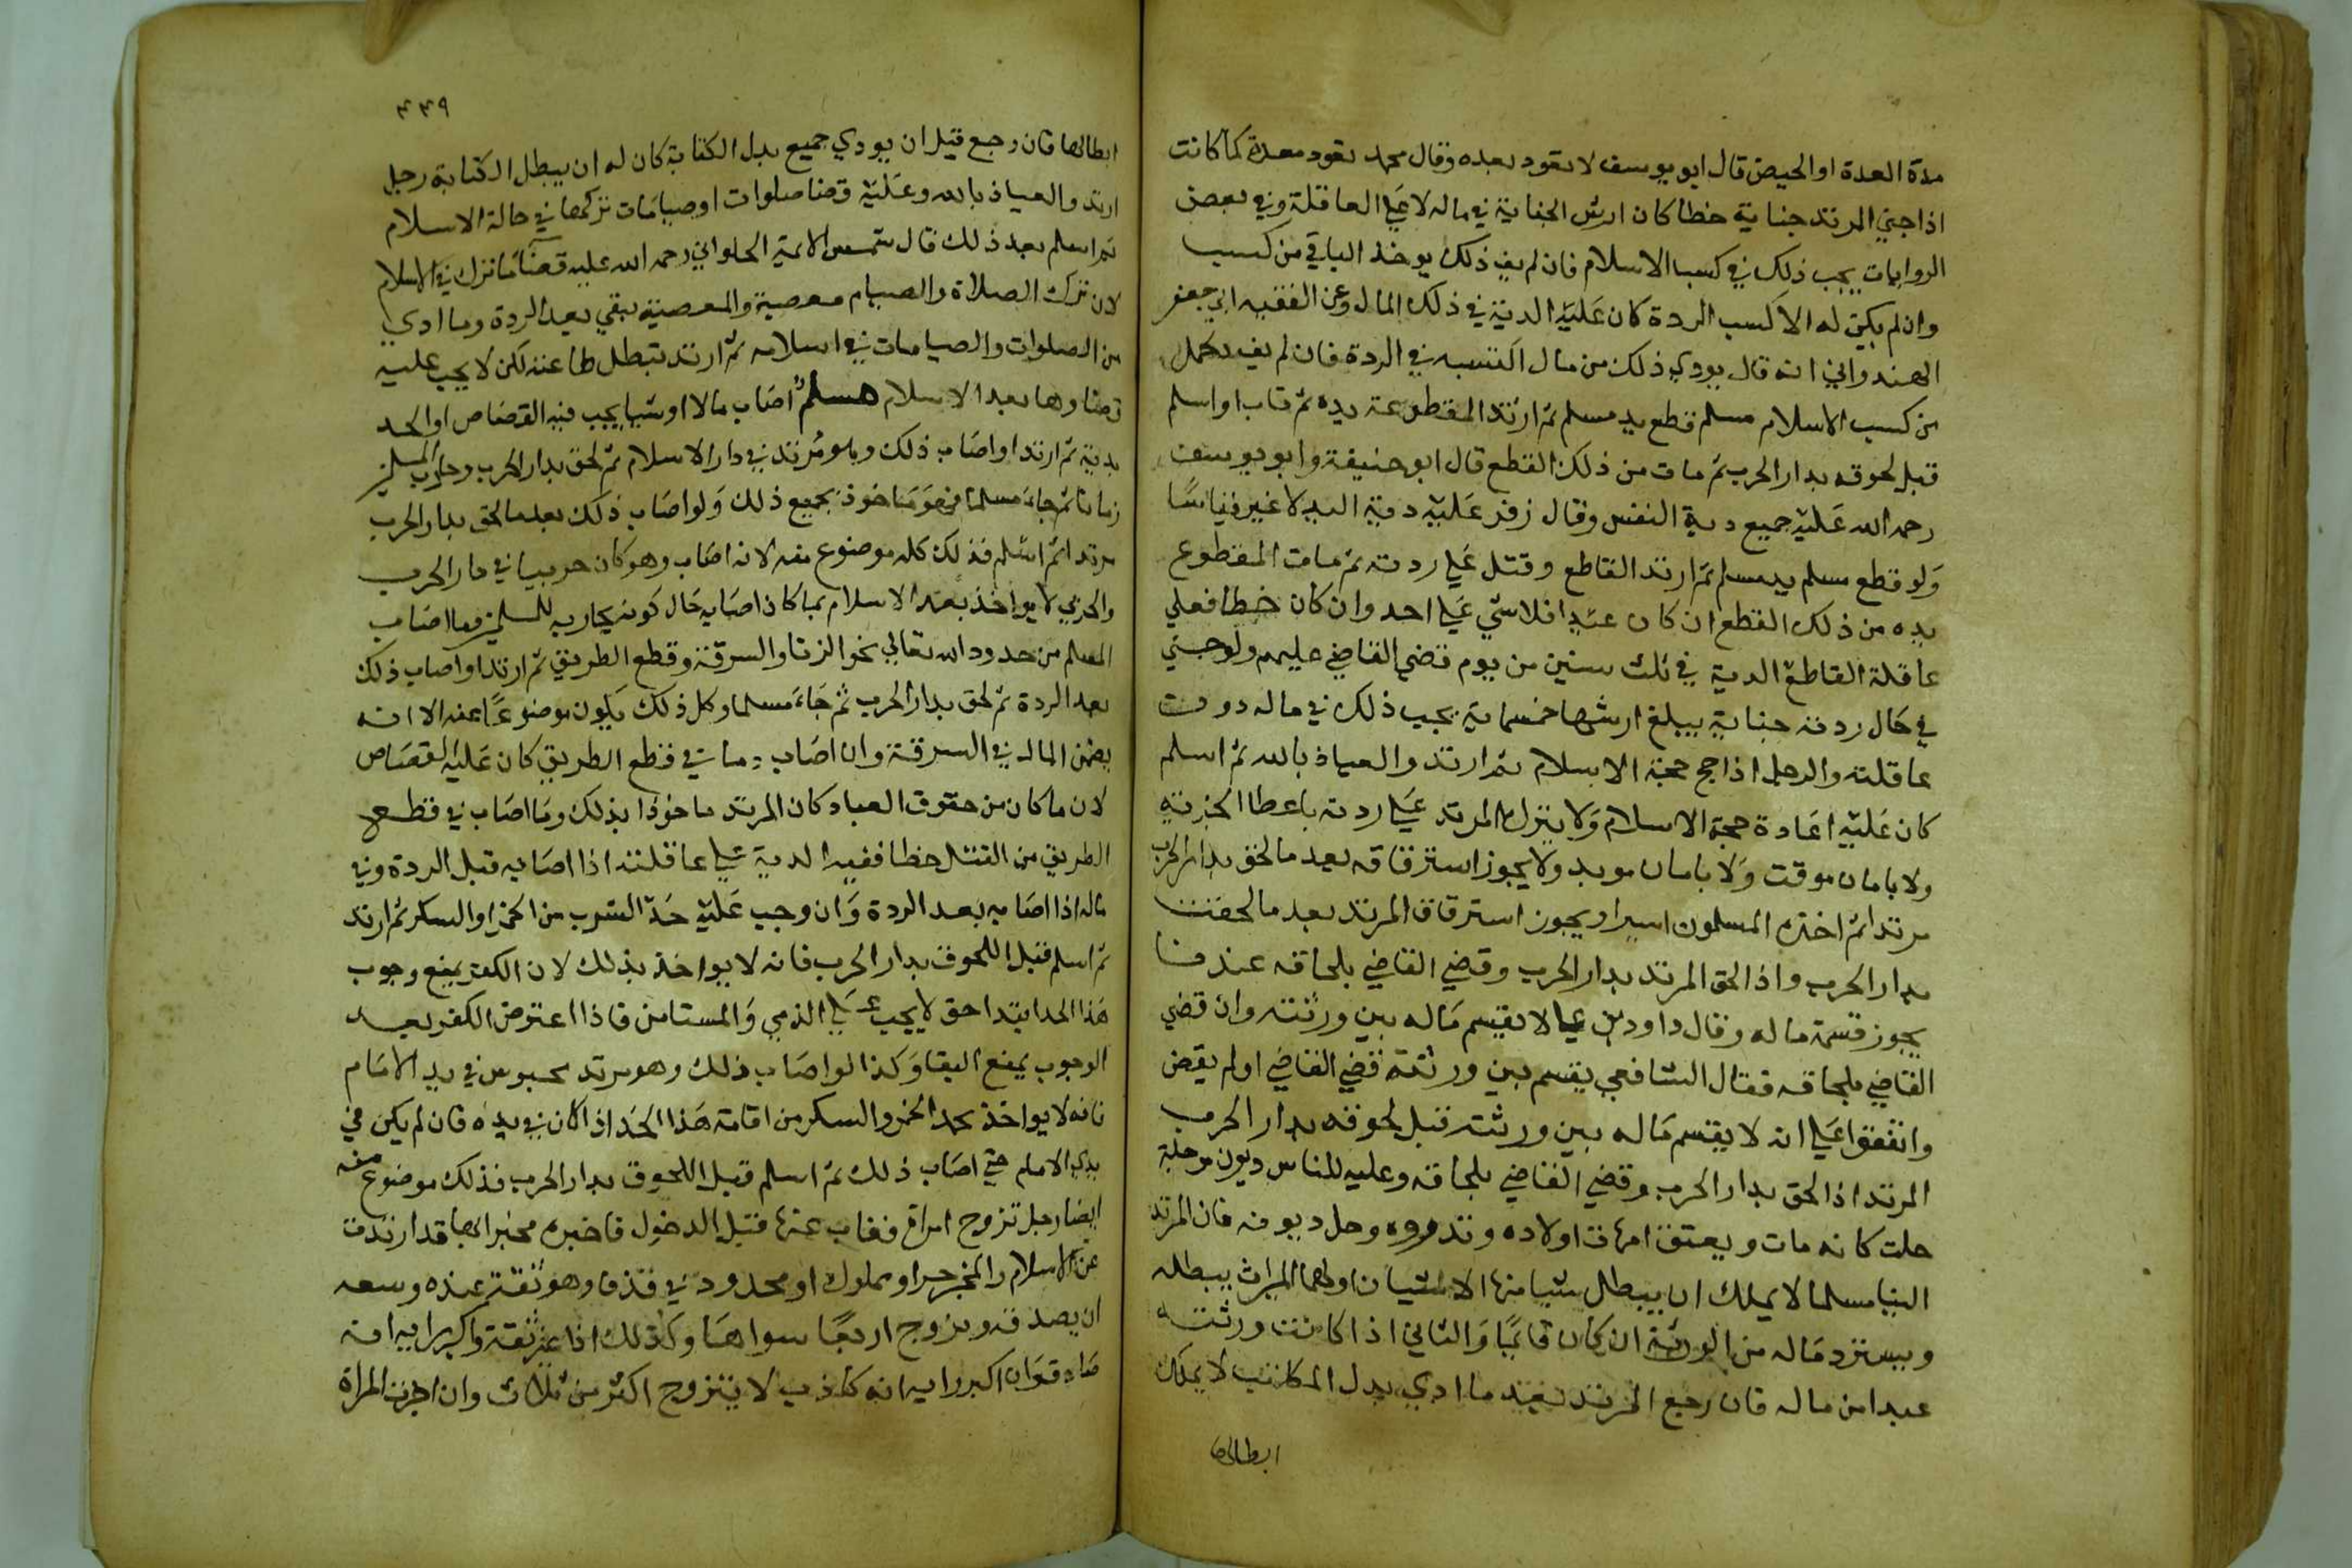 مدة العدة او الحيض قال ابو يوسف لا تعود بعده وقال محمد تعود معدة كما كانت
اذا جني المرتد جناية خطا كان ارش الجناية في ماله لا علي العاقلة وفي بعض
الروايات يجب ذلك في كسب الاسلام فان لم يف ذلك يوخذ الباقي من كسب
وان لم يكن له الا كسب الردة كان عليه الدية في ذلك المال وعن الفقيه ابي جعفر
الهندواني انه قال يودي ذلك من مال اكتسبه في الردة فان لم يف يكمل
من كسب الاسلام مسلم قطع يد مسلم ثم ارتد المقطوعة يده ثم تاب او اسلم
قبل لحوقه بدار الحرب ثم مات من ذلك القطع قال ابو حنيفة وابو يوسف
رحمه الله عليه جميع دية النفس وقال زفر عليه دية اليد لا غير قياسا
ولو قطع مسلم يد مسلم ثم ارتد القاطع وقتل علي ردته ثم مات المقطوع
يده من ذلك القطع ان كان عمدا فلا شي علي احد وان كان خطا فعلي
عاقلة القاطع الدية في ثلث سنين من يوم قضي القاضي عليهم ولو جني
في حال ردته جناية يبلغ ارشها خمسماية يجب ذلك في ماله دون
عاقلته والرجل اذا حج حجة الاسلام ثم ارتد والعياذ بالله ثم اسلم
كان عليه اعادة حجة الاسلام ولا يترك المرتد علي ردته باعطا الجزية
ولا بامان موقت ولا بامان موبد ولا يجوز استرقاقه بعد ما لحق بدار الحرب
مرتدا ثم اخذه المسلمون اسيرا ويجوز استرقاق المرتد بعد ما لحقت
بدار الحرب واذا لحق المرتد بدار الحرب وقضي القاضي بلحاقه عندنا
يجوز قسمة ماله وقال داود بن علي لا يقسم ماله بين ورثته وان قضي
القاضي بلحاقه فقال الشافعي يقسم بين ورثته قضي القاضي او لم يقض
واتفقوا علي انه لا يقسم ماله بين ورثته قبل لحوقه بدار الحرب
المرتد اذا لحق بدار الحرب وقضي القاضي بلحاقه وعليه للناس ديون موجلة
حلت كانه مات ويعتق امهات اولاده وتدبروه وحل ديونه فان المرتد
الينا مسلما لا يملك ان يبطل شيا منها الا شيان اولهما الميراث يبطله
ويسترد ماله من الورثة ان كان قائما والثاني اذا كاتبت ورثته
عبدا من ماله فان رجع المرتد بعد ما ادي بدل المكاتب لا يملك
ابطالها
٤٣٩
ابطالها فان رجع قبل ان يودي جميع بدل الكتابة كان له ان يبطل الكتابة رجل
ارتد والعياذ بالله وعليه قضا صلوات او صيامات تركها في حالة الاسلام
ثم اسلم بعد ذلك قال شمس الائمة الحلواني رحمه الله عليه قضا ما ترك في الاسلام
لان ترك الصلاة والصيام معصية والمعصية تبقي بعد الردة وما ادي
من الصلوات والصيامات في اسلامه ثم ارتد تبطل طاعته لكن لا يجب عليه
قضاوها بعد الاسلام مسلم اصاب مالا او شيا يجب فيه القصاص او الحد
بدية ثم ارتد او اصاب ذلك وهو مرتد في دار الاسلام ثم لحق بدار الحرب وحارب المسلمين
زمانا ثم جا مسلما فهو ماخوذ بجميع ذلك ولو اصاب ذلك بعد ما لحق بدار الحرب
مرتدا ثم اسلم فذلك كله موضوع عنه لانه اصاب وهو كان حربيا في دار الحرب
والحربي لا يواخذ بعد الاسلام بما كان اصابه حال كونه محاربه للمسلمين وما اصاب
المسلم من حدود الله تعالي نحو الزنا والسرقة وقطع الطريق ثم ارتد او اصاب ذلك
بعد الردة ثم لحق بدار الحرب ثم جا مسلما وكل ذلك يكون موضوعا عنه الا انه
يضمن المال في السرقة وان اصاب دما في قطع الطريق كان عليه القصاص
لان ما كان من حقوق العباد كان المرتد ماخوذا بذلك وما اصاب في قطع
الطريق من القتل خطا ففيه الدية علي عاقلته اذا اصابه قبل الردة وفي
ماله اذا اصابه بعد الردة وان وجب عليه حد الشرب من الخمر او السكر ثم ارتد
ثم اسلم قبل اللحوق بدار الحرب فانه لا يواخذ بذلك لان الكفر يمنع وجوب
هذا الحد ابتدا حق لا يجب علي الذمي والمستامن فاذا اعترض الكفر بعد
الوجوب يمنع البقا وكذا لو اصاب ذلك وهو مرتد محبوس في يد الامام
فانه لا يواخذ بحد الخمر والسكر من اقامة هذا الحد اذا كان في يده فان لم يكن في
يدي الامام حتي اصاب ذلك ثم اسلم قبل اللحوق بدار الحرب فذلك موضوع عنه
ايضا رجل تزوج امراة فغاب عنها قبل الدخول فاخبره مخبر انها قد ارتدت
عن الاسلام والمخبر حر او مملوك او محدود في قذف وهو ثقة عنده وسعه
ان يصدقه ويزوج اربعا سواها وكذلك اذا غير ثقة واكبر رايه انه
صادق وان اكبر رايه انه كاذب لا يتزوج اكثر من ثلاث وان اخبرت المراة